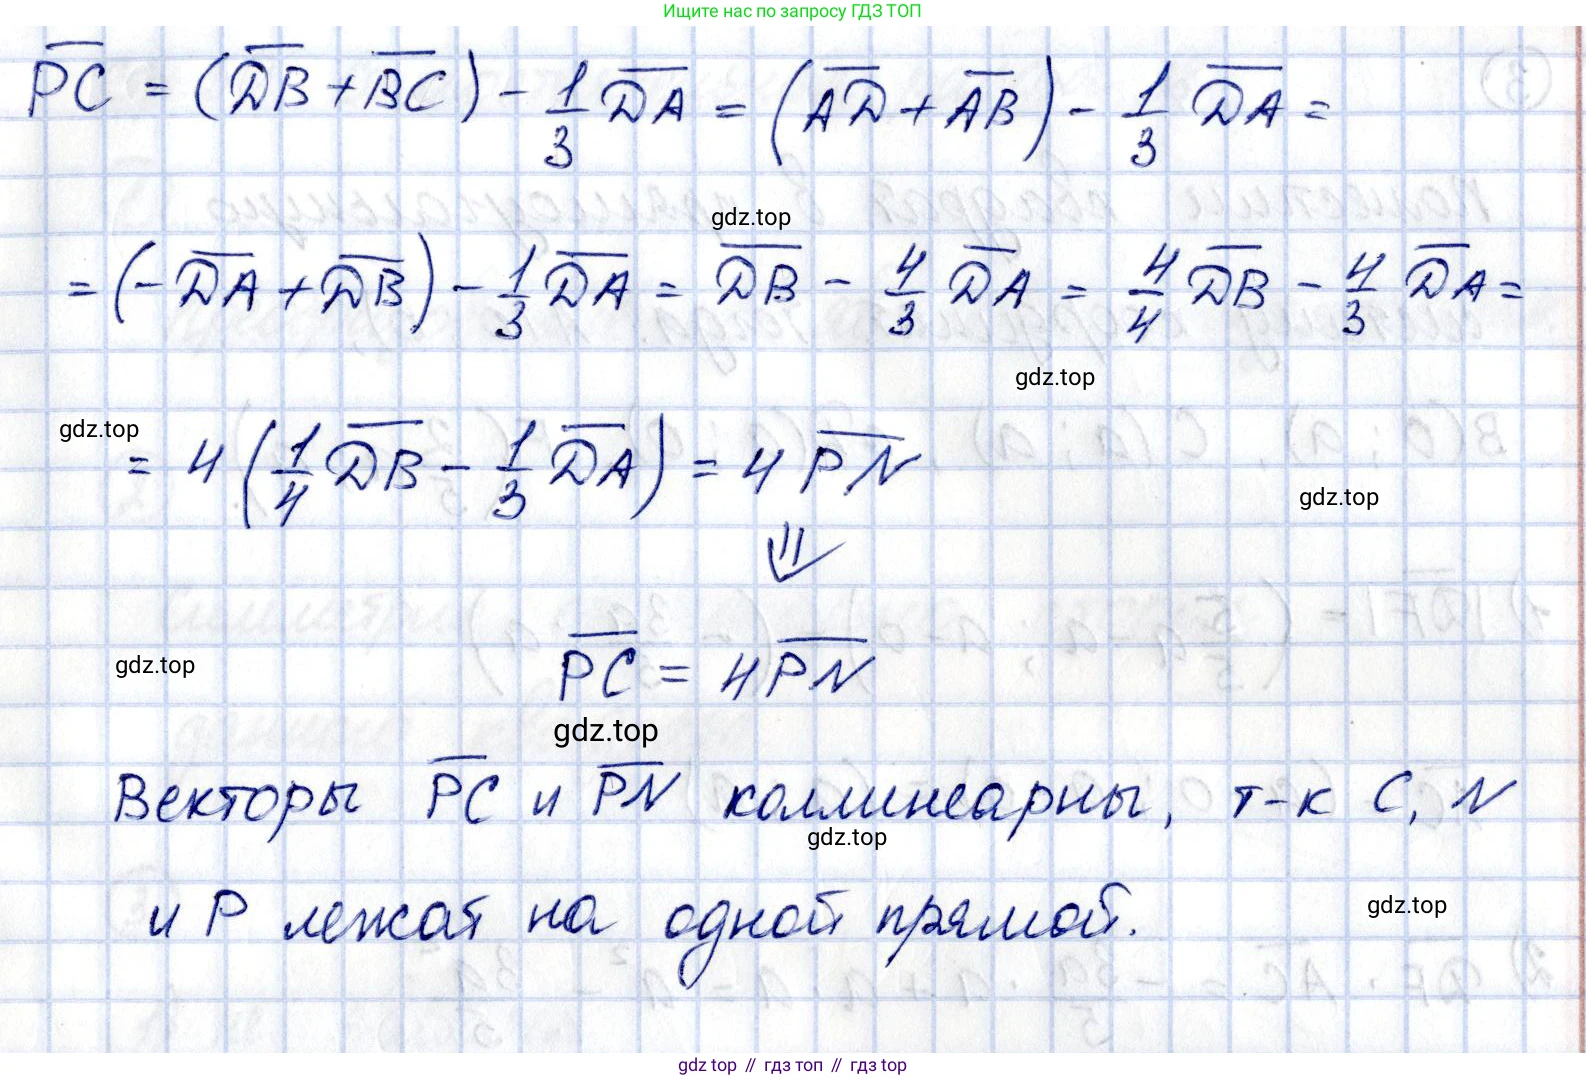 Ищите нас по запросу ГДЗ ТОП
PC = (DB + BC) - 1/3 DA = (AD + AB) - 1/3 DA =
gdz.top
= (-DA + DB) - 1/3 DA = DB - 4/3 DA = 4/4 DB - 4/3 DA =
gdz.top
gdz.top
= 4 (1/4 DB - 1/3 DA) = 4 PN
gdz.top
⇓
PC = 4 PN
gdz.top
gdz.top
Векторы PC и PN коллинеарны, т-к C, N
gdz.top
и P лежат на одной прямой.
gdz.top
gdz top // гдз топ // гдз top